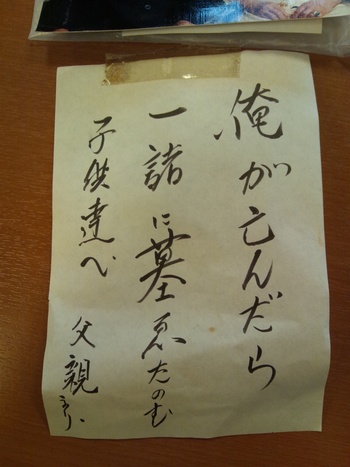 俺が亡んだら
一諸に墓へたのむ
子供達へ
父親より